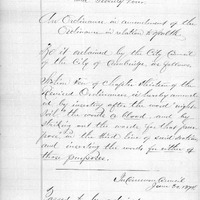 and Twenty four.
An Ordinance in amendment of the
Ordinance in relation to
Be it ordained by the City Council
of the City of Cambridge, as follows:
Section of Chapter Thirteen of the
Revised Ordinances is hereby amended
by inserting after the word "night
soil" the words or blood, and by
striking out the words for that pur-
pose in the third line of said section
and inserting the words for either of
those purposes.
In Common Council
June 1875